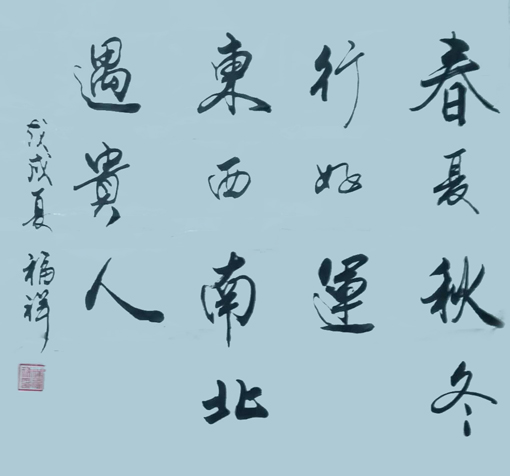 春夏秋冬
行好運
東西南北
遇貴人
戊戌夏 福祥